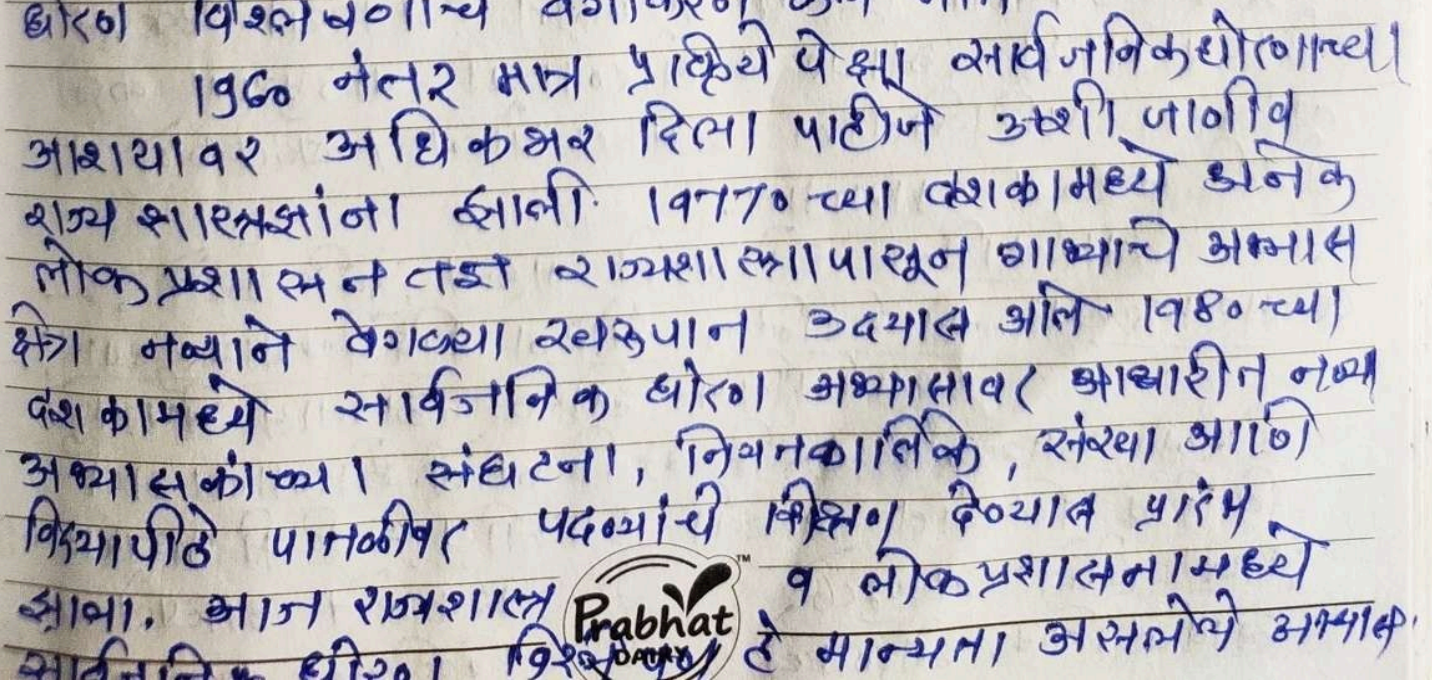 धोरण विश्लेषणाचे वर्गीकरण
1960 नंतर मात्र प्रक्रिये पेक्षा सार्वजनिक धोरणाच्या
आशयावर अधिक भर दिला पाहीजे अशी जाणीव
राज्य शास्त्रज्ञांना झाली 19770 च्या दशकामध्ये अनेक
लोक प्रशासन तज्ञ राज्यशास्त्रापासून गाभ्याचे अभ्यास
क्षेत्रा नव्याने वेगळ्या स्वरुपान उदयास आले 1980 च्या
दशकामध्ये सार्वजनिक धोरण अभ्यासावर आधारीत नव्या
अभ्यासकांच्या संघटना, नियतकालिके, संस्था आणि
विद्यापीठे पातळीवर पदव्यांचे शिक्षण देण्यात प्रारंभ
झाला. आज राज्यशास्त्र व लोकप्रशासनामध्ये
Prabhat DAIRY ™
सार्वजनिक धोरण विश्लेषण हे मान्यता असलेये अभ्यास